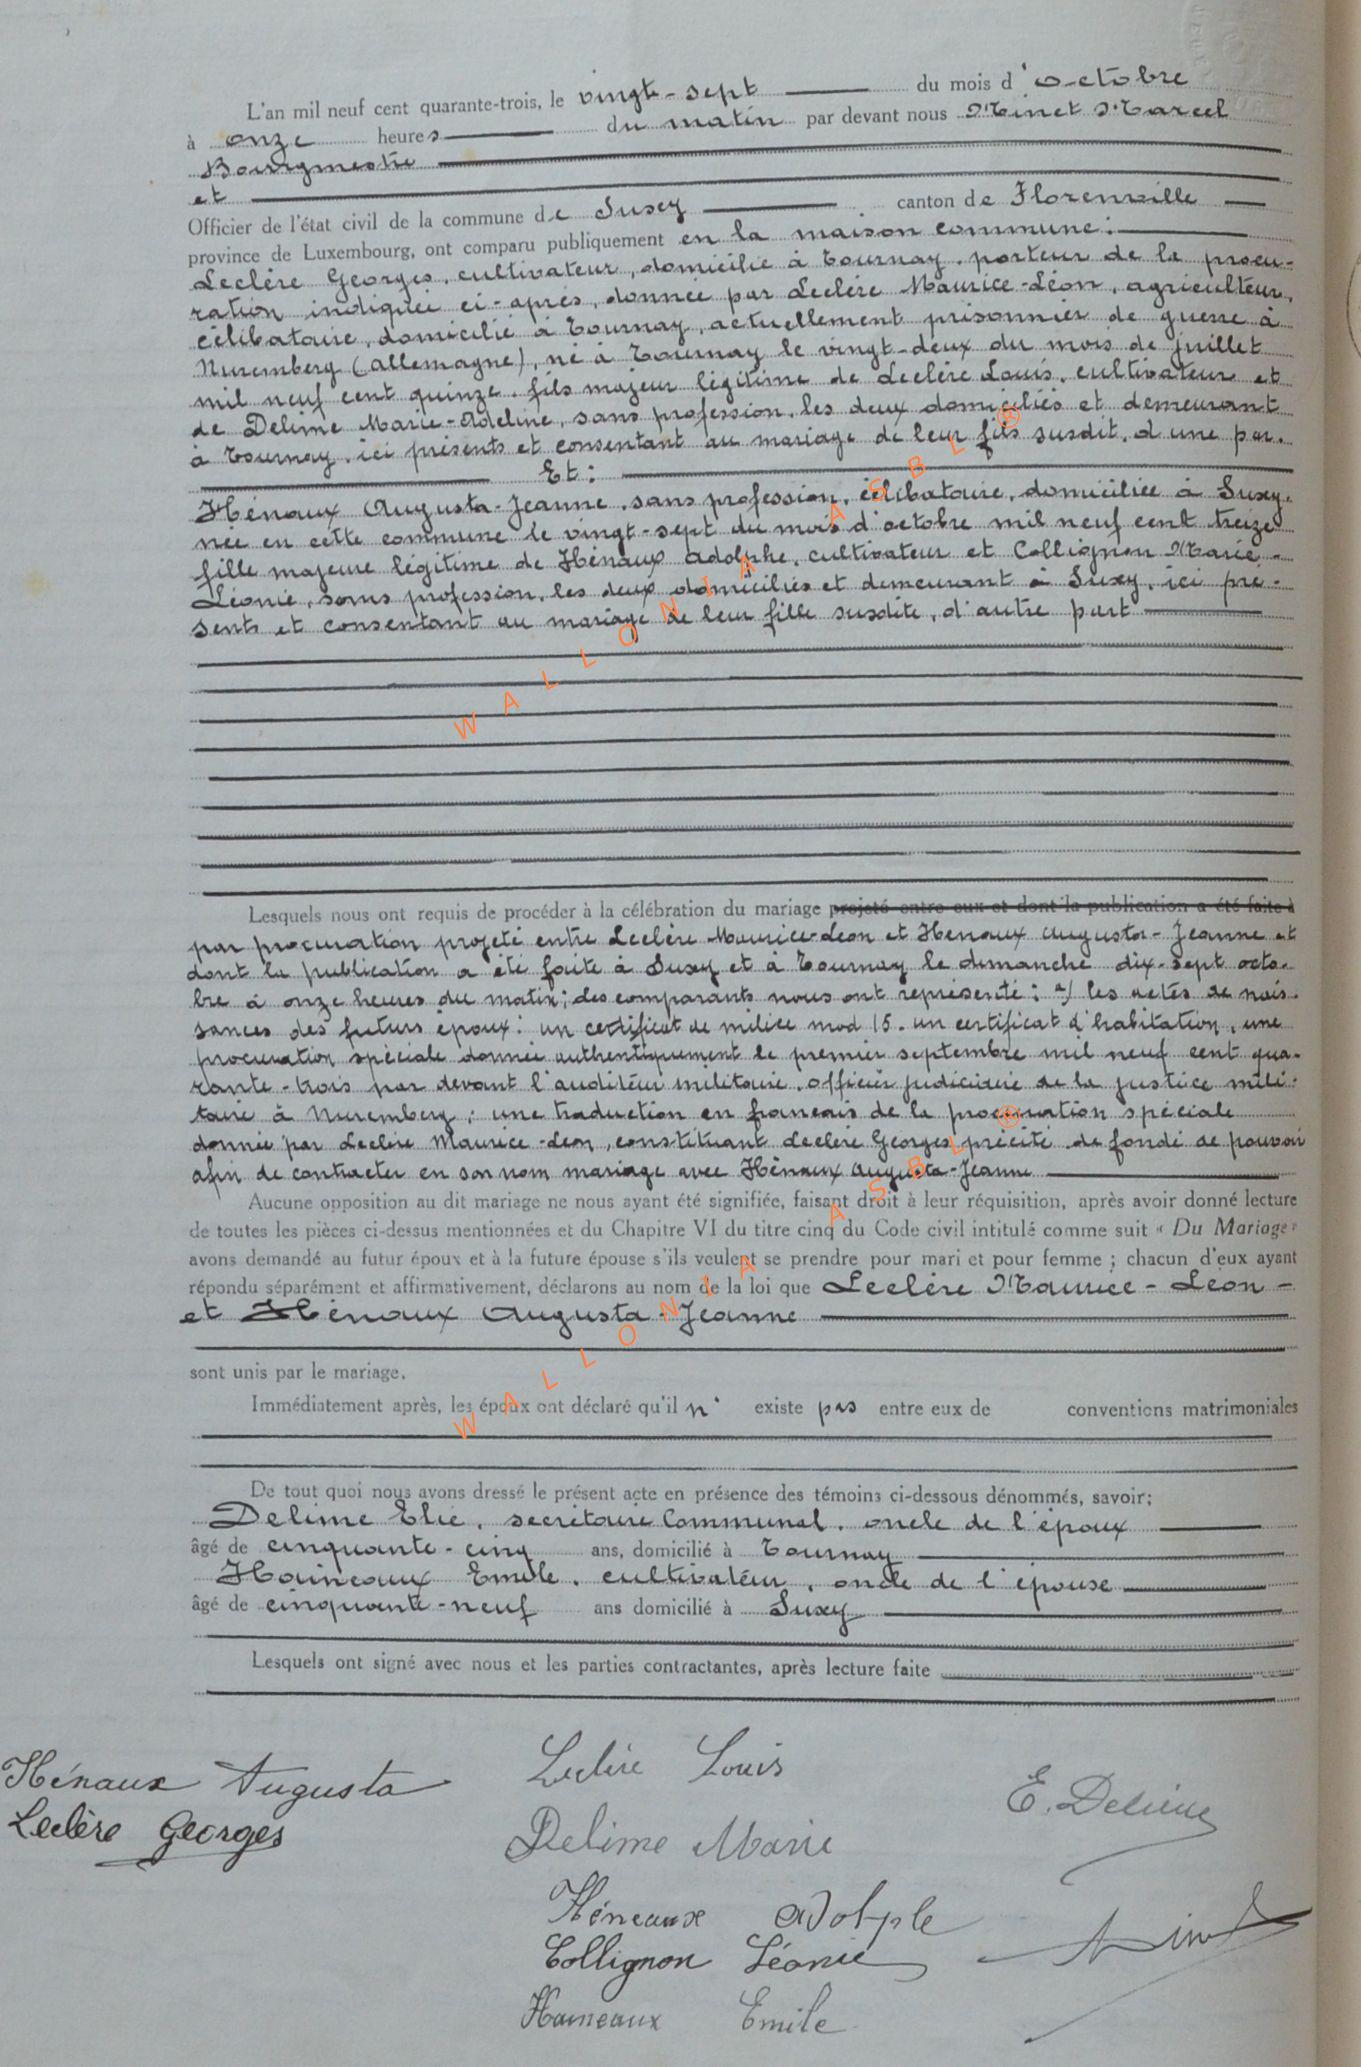 L'an mil neuf cent quarante-trois, le vingt-sept du mois d'octobre
à onze heures du matin par devant nous Minet Marcel
Bourgmestre
et
Officier de l'état civil de la commune de Suxey canton de Florenville
province de Luxembourg, ont comparu publiquement en la maison commune :
Leclère Georges, cultivateur, domicilié à Tournay, porteur de la procu-
ration indiquée ci-après, donnée par Leclère Maurice-Léon, agriculteur,
célibataire, domicilié à Tournay, actuellement prisonnier de guerre à
Nuremberg (Allemagne), né à Tournay le vingt-deux du mois de juillet
mil neuf cent quinze, fils majeur légitime de Leclère Louis, cultivateur et
de Delime Marie-Adeline, sans profession, les deux domiciliés et demeurant
à Tournay, ici présents et consentant au mariage de leur fils susdit, d'une par.
Et :
Hénaux Augusta-Jeanne, sans profession, célibataire, domiciliée à Suxey,
née en cette commune le vingt-sept du mois d'octobre mil neuf cent treize
fille majeure légitime de Hénaux Adolphe, cultivateur et Collignon Marie-
Léonie, sans profession, les deux domiciliés et demeurant à Suxy, ici pré-
sents et consentant au mariage de leur fille susdite, d'autre part
Lesquels nous ont requis de procéder à la célébration du mariage projeté entre eux et dont la publication a été faite à
par procuration projeté entre Leclère Maurice-Léon et Hénaux Augusta-Jeanne et
dont la publication a été faite à Suxy et à Tournay le dimanche dix-sept octo-
bre à onze heures du matin ; des comparants nous ont représenté : a) les actes de nais-
sances des futurs époux : un certificat de milice mod 15. un certificat d'habitation, une
procuration spéciale donnée authentiquement le premier septembre mil neuf cent qua-
rante-trois par devant l'auditeur militaire, officier judiciaire de la justice mili-
taire à Nuremberg ; une traduction en français de la procuration spéciale
donnée par Leclère Maurice-Léon, constituant Leclère Georges précité de fondé de pouvoir
afin de contracter en son nom mariage avec Hénaux Augusta-Jeanne
Aucune opposition au dit mariage ne nous ayant été signifiée, faisant droit à leur réquisition, après avoir donné lecture
de toutes les pièces ci-dessus mentionnées et du Chapitre VI du titre cinq du Code civil intitulé comme suit « Du Mariage »
avons demandé au futur époux et à la future épouse s'ils veulent se prendre pour mari et pour femme ; chacun d'eux ayant
répondu séparément et affirmativement, déclarons au nom de la loi que Leclère Maurice-Léon-
et Hénaux Augusta-Jeanne
sont unis par le mariage.
Immédiatement après, les époux ont déclaré qu'il n' existe pas entre eux de conventions matrimoniales
De tout quoi nous avons dressé le présent acte en présence des témoins ci-dessous dénommés, savoir :
Delime Elie, secrétaire Communal, oncle de l'époux
âgé de cinquante-cinq ans, domicilié à Tournay
Haineaux Emile, cultivateur, oncle de l'épouse
âgé de cinquante-neuf ans domicilié à Suxy
Lesquels ont signé avec nous et les parties contractantes, après lecture faite
Hénaux Augusta
Leclère Georges
Leclère Louis
Delime Marie
E. Delime
Héneaux Adolphe
Collignon Léonie
Haineaux Emile
WALLONIA ASBL ®
WALLONIA ASBL ®